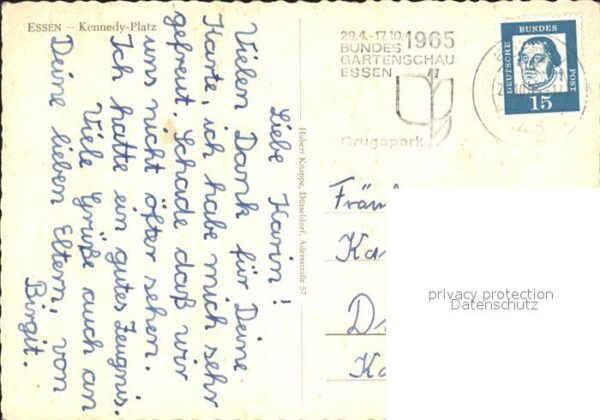 ESSEN – Kennedy-Platz
Liebe Karin!
Vielen Dank für Deine
Karte, ich habe mich sehr
gefreut. Schade daß wir
uns nicht öfter sehen.
Ich hatte ein gutes Zeugnis,
Viele Grüße auch an
Deine lieben Eltern, von
Birgit.
Hubert Knappe, Düsseldorf, Adersstraße 57
29.4.-17.10.1965
BUNDES
GARTENSCHAU
ESSEN
Grugapark
DEUTSCHE
BUNDES
POST
15
Fräu
Ka
D
Ka
privacy protection
Datenschutz